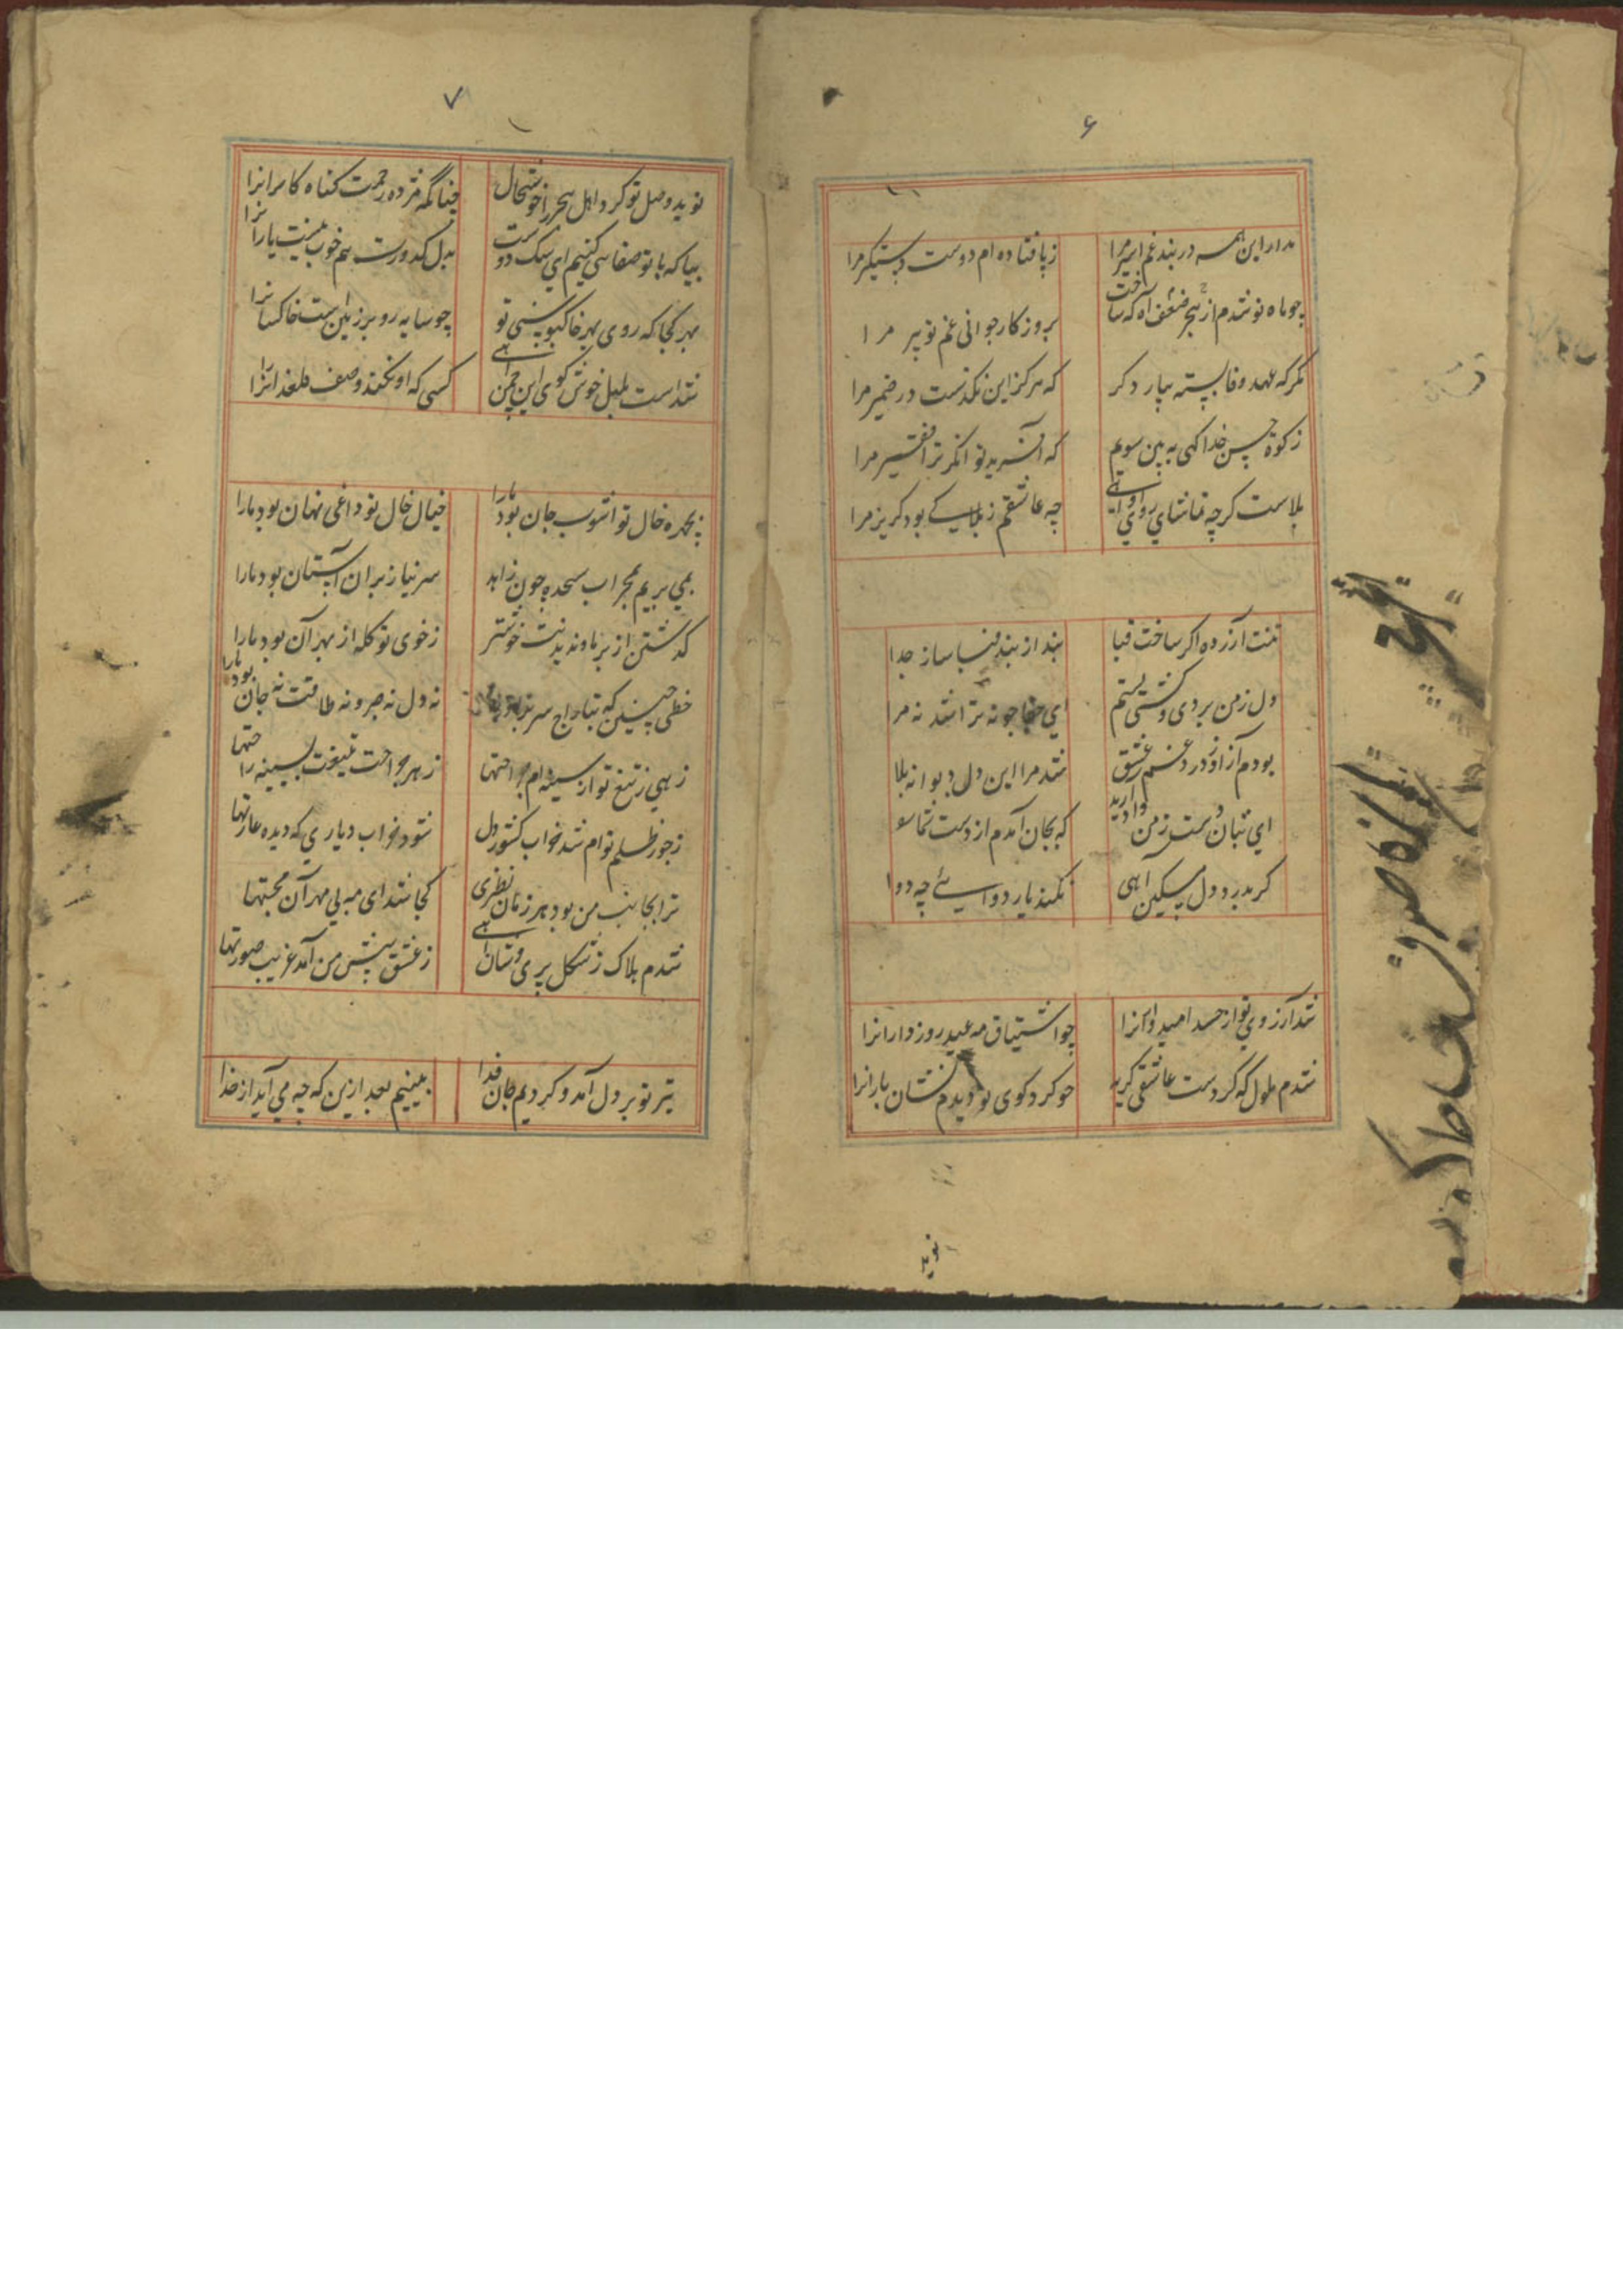 ۶
مدار این همه در بند غم اسیر مرا
ز پا فتاده ام دوست دستگیر مرا
چو ماه نو شدم از هجر ضعف آه که ساخت
بروزکار جوانی غم تو پیر مرا
مکر که عهد وفا بسته بیار دکر
که هرکز این نکذست در ضمیر مرا
زکوة حسن خدا کهی به بین سویم
که آفرید توانکر ترا فقیر مرا
بلاست کرچه تماشای روی او
چه عاشقم ز بلا کی بود کریز مرا
تنت آزرده اکر ساخت قبا
بند از بند قبا ساز جدا
دل زمن بردی و کشتی بستم
ای جفاجو نه ترا شد نه مرا
بودم آزاد ز درد و غم عشق
شد مرا این دل دیوانه بلا
ای بتان دست ز من وادارید
که بجان آمدم از دست شما
کر بدرد دل مسکین آهی
نکند یار دوایی چه دوا
شد آرزوی تو از حد امیدوارانرا
چو اشتیاق مه عید روزدارانرا
شدم ملول که کردست عاشقی کریه
چو کرد کوی تو دیدم نشان بارانرا
نوید
۷
نوید وصل تو کرد اهل هجر را خوشحال
چنانکه مژده رحمت کناه کارانرا
بیا که با تو صفا می کنیم ای سک دوست
بدل کدورت هم خوب نیست یارانرا
بهر کجا که روی بهر خاکبوسی تو
چو سایه رو بر زمین است خاکسارانرا
شد است بلبل خوش کوی این چمن آهی
کسی که او نکند وصف کلعذارانرا
بچهره خال تو آشوب جان بود مارا
خیال خال تو داغی نهان بود مارا
نمی بریم بمحراب سجده چون زاهد
سر نیاز بر آن آستان بود مارا
کذشتن از بر ما و ندیدنت خوشتر
ز خوی تو کله از بهر آن بود مارا
خطی چنین که بتاراج سر برآورد
نه دل نه صبر و نه طاقت نه جان بود مارا
زهی ز تیغ تو از سینه ام جراحتها
ز هر جراحت تیغت بسینه راحتها
ز جور ظلم توام شد خراب کشور دل
شود خراب دیاری که دیده غارتها
ترا بجانب من بود هر زمان نظری
کجا شد ای مه بی مهر آن محبتها
شدم هلاک ز شکل پری وشان آهی
ز عشق پیش من آمد غریب صورتها
تیر تو بر دل آمد و کردیم جان فدا
بینیم بعد ازین که چه می آید از خدا